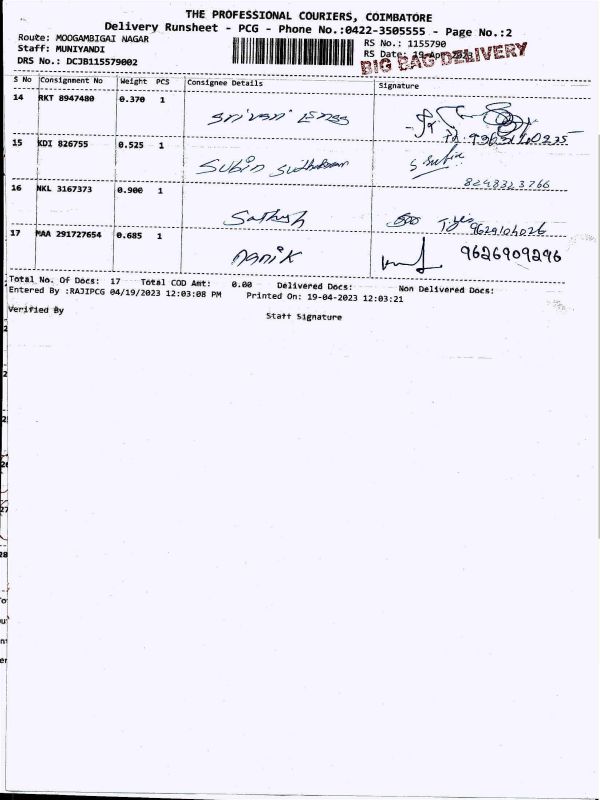 THE PROFESSIONAL COURIERS, COIMBATORE
Delivery Runsheet - PCG - Phone No.:0422-3505555 - Page No.:2
Route: MOOGAMBIGAI NAGAR
RS No.: 1155790
Staff: MUNIYANDI
RS Date: 19-Apr-2023
BIG BAG DELIVERY
DRS No.: DCJB115579002
S No Consignment No Weight PCS Consignee Details Signature
14 RKT 8947480 0.370 1
15 KDI 826755 0.525 1 Subin
8248323766
16 NKL 3167373 0.900 1 Sathish
17 MAA 291727654 0.685 1 Manik 9626909296
Total No. Of Docs: 17 Total COD Amt: 0.00 Delivered Docs: Non Delivered Docs:
Entered By :RAJIPCG 04/19/2023 12:03:08 PM Printed On: 19-04-2023 12:03:21
Verified By
Staff Signature